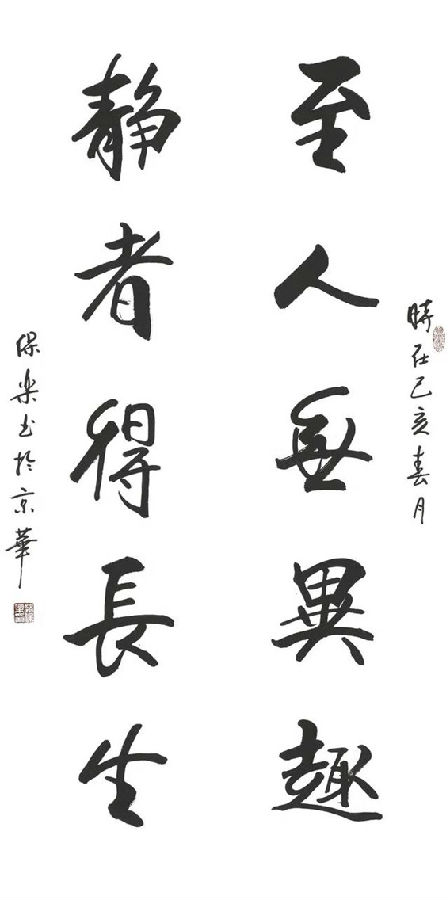 時在己亥春月
至人無異趣
静者得長生
保樂书於京華